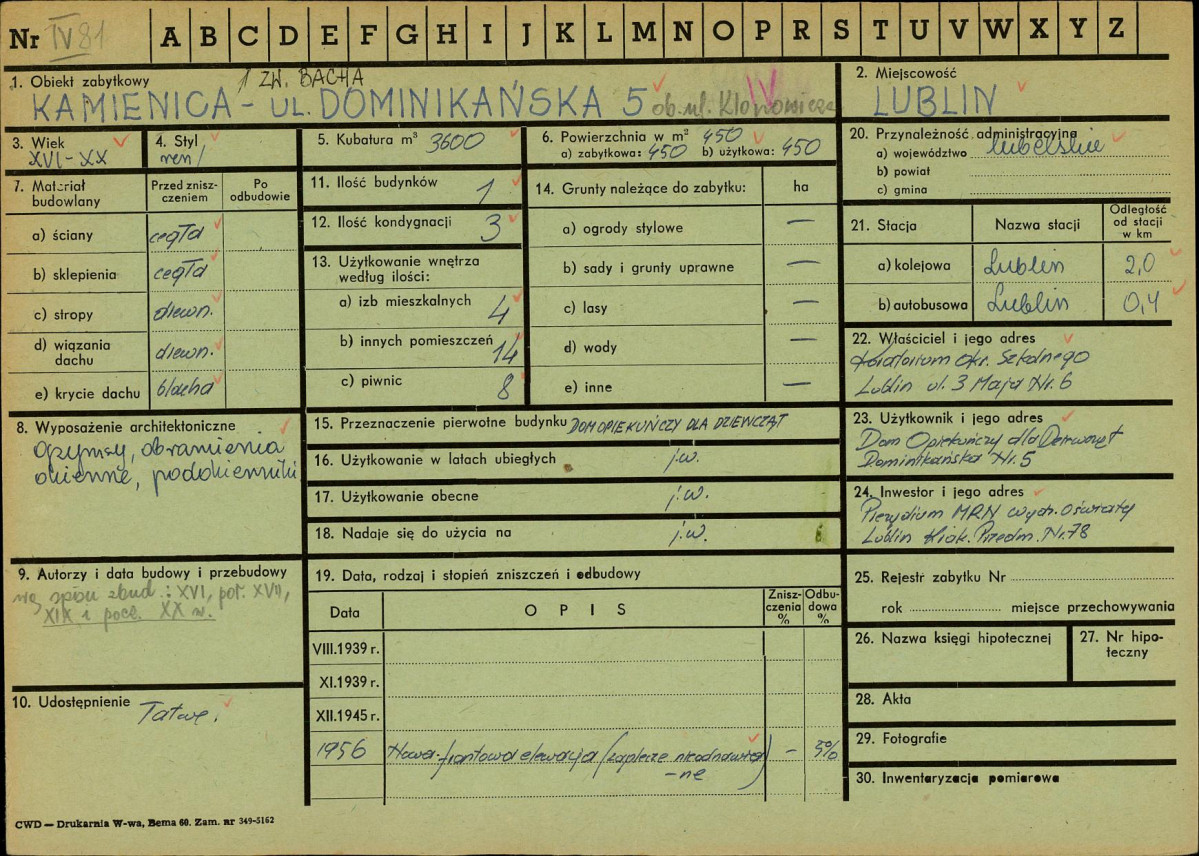 Nr IV 81 A B C D E F G H I J K L M N O P R S T U V W X Y Z
1. Obiekt zabytkowy ZW. BACHA
KAMIENICA - UL. DOMINIKAŃSKA 5 ob. ul. Klonowicza IV
2. Miejscowość
LUBLIN
3. Wiek
XVI-XX
4. Styl
ren/
5. Kubatura m³ 3600
6. Powierzchnia w m² 450
a) zabytkowa: 450 b) użytkowa: 450
20. Przynależność administracyjna
a) województwo lubelskie
b) powiat
c) gmina
7. Materiał budowlany
Przed zniszczeniem
Po odbudowie
a) ściany cegła
b) sklepienia cegła
c) stropy drewn.
d) wiązania dachu drewn.
e) krycie dachu blacha
11. Ilość budynków 1
12. Ilość kondygnacji 3
13. Użytkowanie wnętrza
według ilości:
a) izb mieszkalnych 4
b) innych pomieszczeń 14
c) piwnic 8
14. Grunty należące do zabytku: ha
a) ogrody stylowe —
b) sady i grunty uprawne —
c) lasy —
d) wody —
e) inne —
21. Stacja Nazwa stacji Odległość od stacji w km
a) kolejowa Lublin 2,0
b) autobusowa Lublin 0,4
22. Właściciel i jego adres
Kuratorium Okr. Szkolnego
Lublin ul. 3 Maja Nr. 6
8. Wyposażenie architektoniczne
gzymsy, obramienia
okienne, podokienniki
15. Przeznaczenie pierwotne budynku DOM OPIEKUŃCZY DLA DZIEWCZĄT
16. Użytkowanie w latach ubiegłych j.w.
17. Użytkowanie obecne j.w.
18. Nadaje się do użycia na j.w.
23. Użytkownik i jego adres
Dom Opiekuńczy dla Dziewcząt
Dominikańska Nr. 5
24. Inwestor i jego adres
Prezydium MRN wydz. oświaty
Lublin Krak. Przedm. Nr. 78
9. Autorzy i data budowy i przebudowy
zbud.: XVI, poł. XVII,
XIX i pocz. XX w.
19. Data, rodzaj i stopień zniszczeń i odbudowy
Data OPIS Zniszczenia % Odbudowa %
VIII.1939 r.
XI.1939 r.
XII.1945 r.
1956 Nowa frontowa elewacja (zaplecze nieodnawia-
-ne) - 5%
25. Rejestr zabytku Nr
rok miejsce przechowywania
26. Nazwa księgi hipotecznej
27. Nr hipoteczny
10. Udostępnienie Łatwe.
28. Akta
29. Fotografie
30. Inwentaryzacja pomiarowa
CWD — Drukarnia W-wa, Bema 60. Zam. nr 349-5162